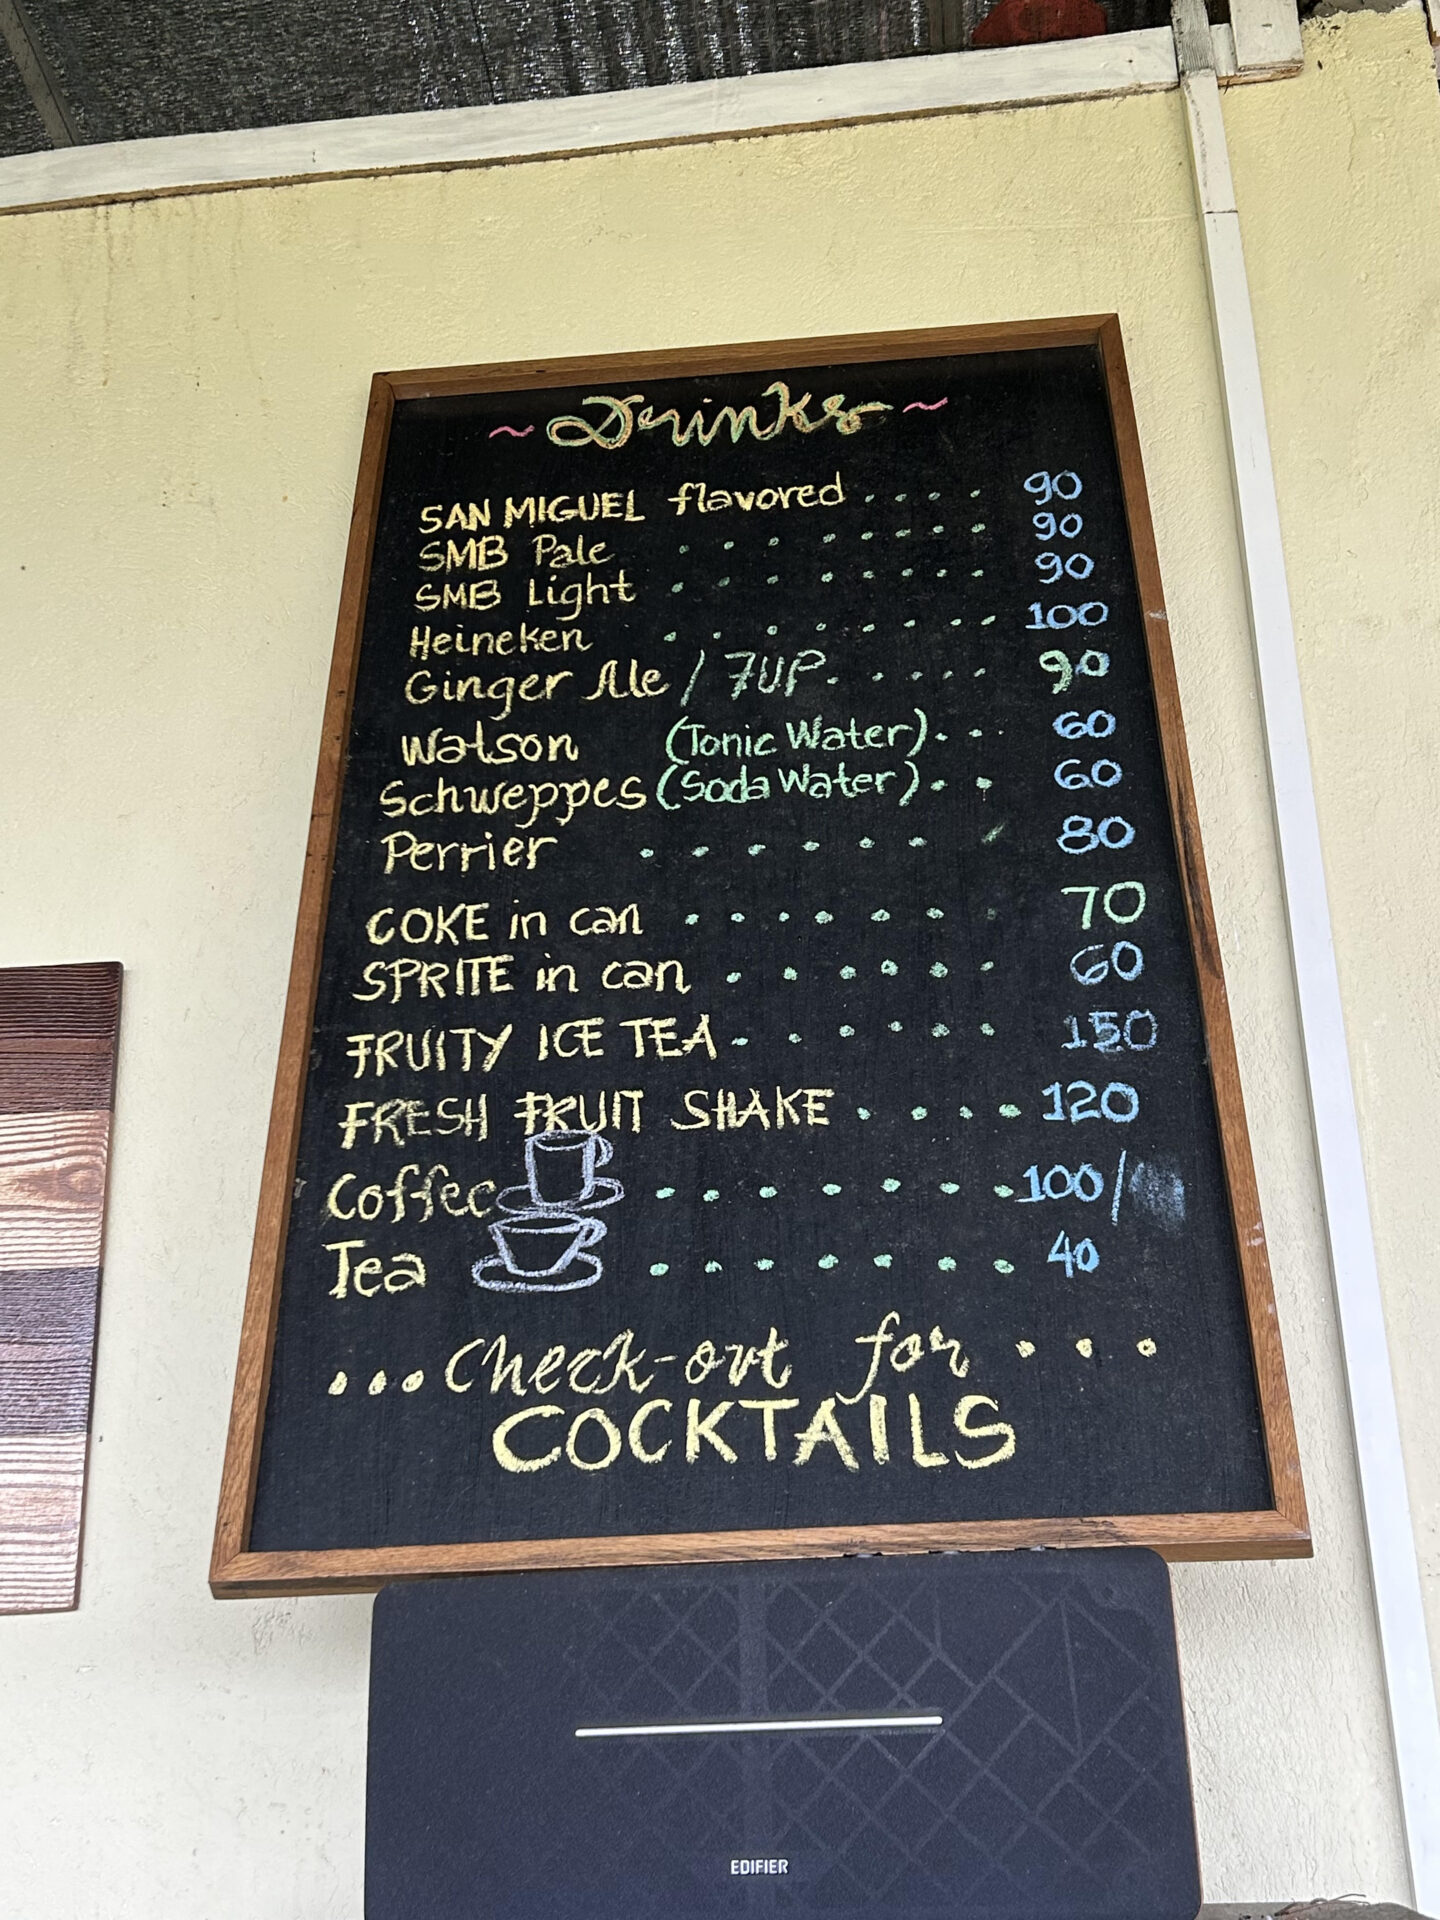 ~ Drinks ~
SAN MIGUEL flavored .... 90
SMB Pale ....... 90
SMB Light ....... 90
Heineken ....... 100
Ginger Ale / 7UP ..... 90
Watson (Tonic Water) ... 60
Schweppes (Soda Water) .. 60
Perrier ....... 80
COKE in can ...... 70
SPRITE in can ...... 60
FRUITY ICE TEA ...... 150
FRESH FRUIT SHAKE .... 120
Coffee ....... 100/
Tea ....... 40
...Check-out for ...
COCKTAILS
EDIFIER